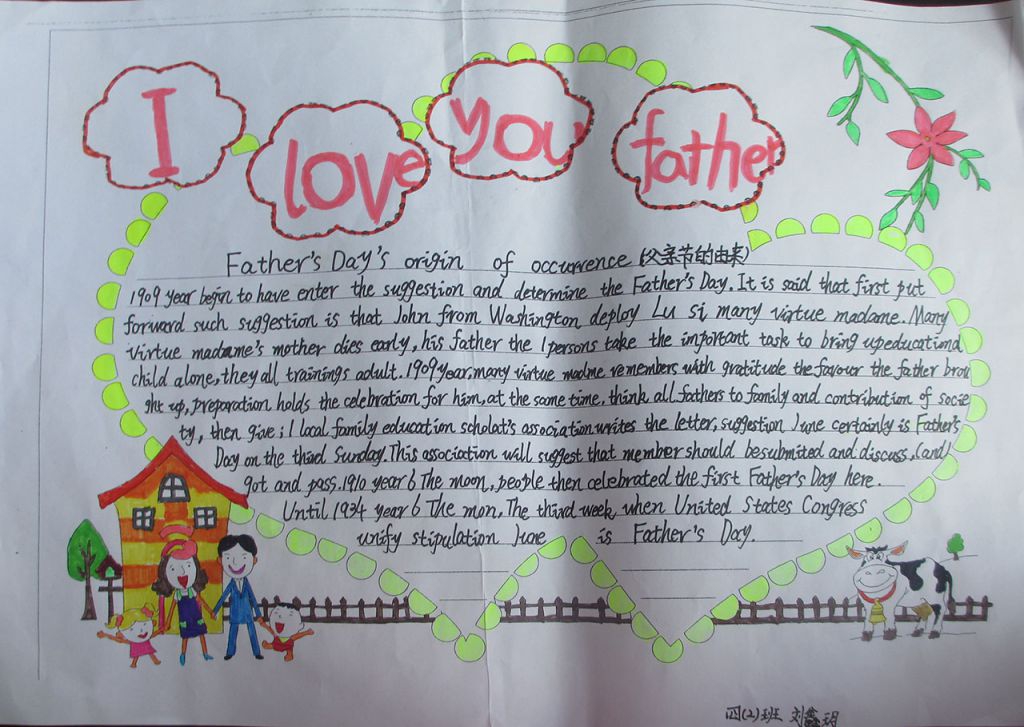 I love you father
Father's Day's origin of occurrence (父亲节的由来)
1909 year begin to have enter the suggestion and determine the Father's Day. It is said that first put
forward such suggestion is that John from Washington deploy Lu si many virtue madame. Many
virtue madame's mother dies early, his father the 1persons take the important task to bring upeducationd
child alone, they all trainings adult. 1909year, many virtue madme remembers with gratitude the favour the father brou
ght up, preparation holds the celebration for him, at the same time, think all fathers to family and contribution of socie
ty, then give; I local family education scholat's association writes the letter, suggestion June certainly is Father's
Day on the third Sunday. This association will suggest that member should besubmited and discuss, (and)
got and pass. 1910 year 6 The moon, people then celebrated the first Father's Day here.
Until 1934 year 6 The mon, The third week, when United States Congress
unify stipulation June is Father's Day.
四(2)班 刘鑫玥